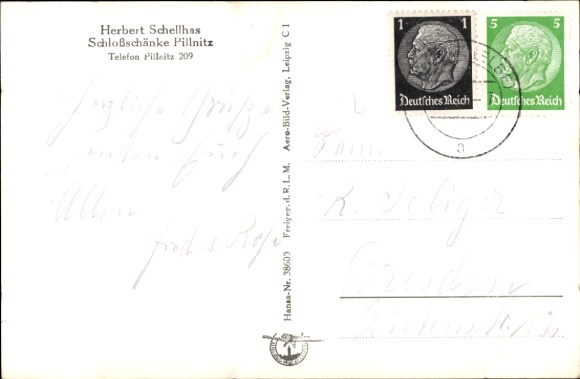 Herbert Schellhas
Schloßschänke Pillnitz
Telefon Pillnitz 209
Herzliche Grüße
senden Euch
Allen
Fred u Rose
Hansa-Nr. 38600 Freigeg. d. R.L.M. Aero-Bild-Verlag, Leipzig C 1
1 1
Deutsches Reich
5 5
Deutsches Reich
a
K. Seliger
Dresden